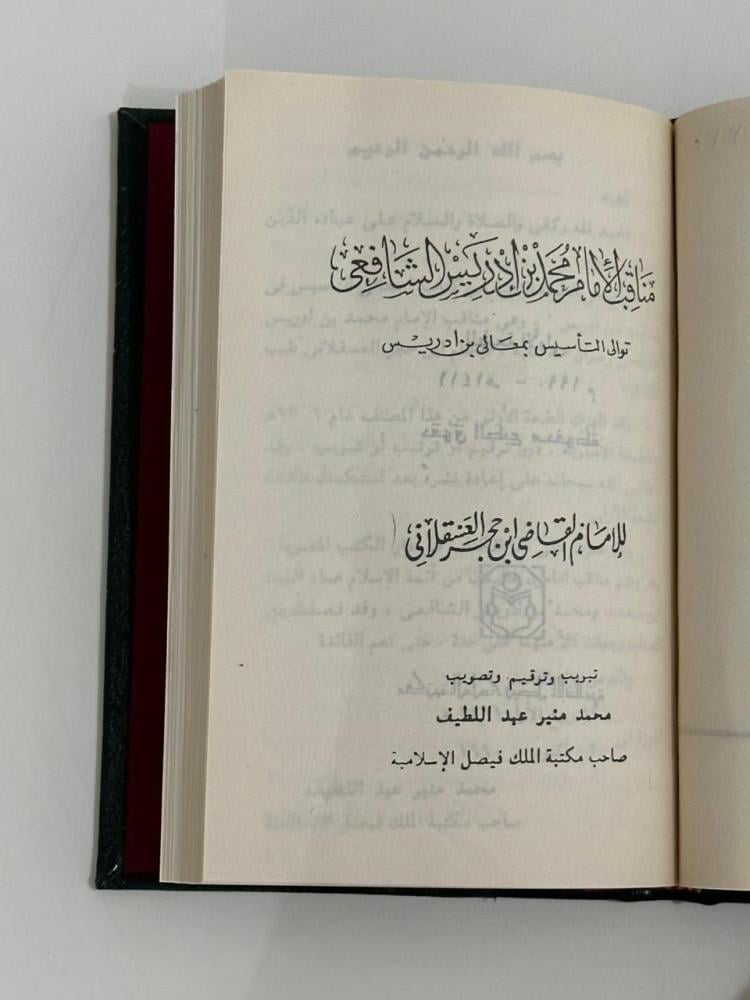 مناقب الإمام محمد بن إدريس الشافعي
توالى التأسيس بمعالى بن ادريس
للإمام القاضي ابن حجر العسقلاني
تبريب وترقيم وتصويب
محمد منير عبد اللطيف
صاحب مكتبة الملك فيصل الإسلامية